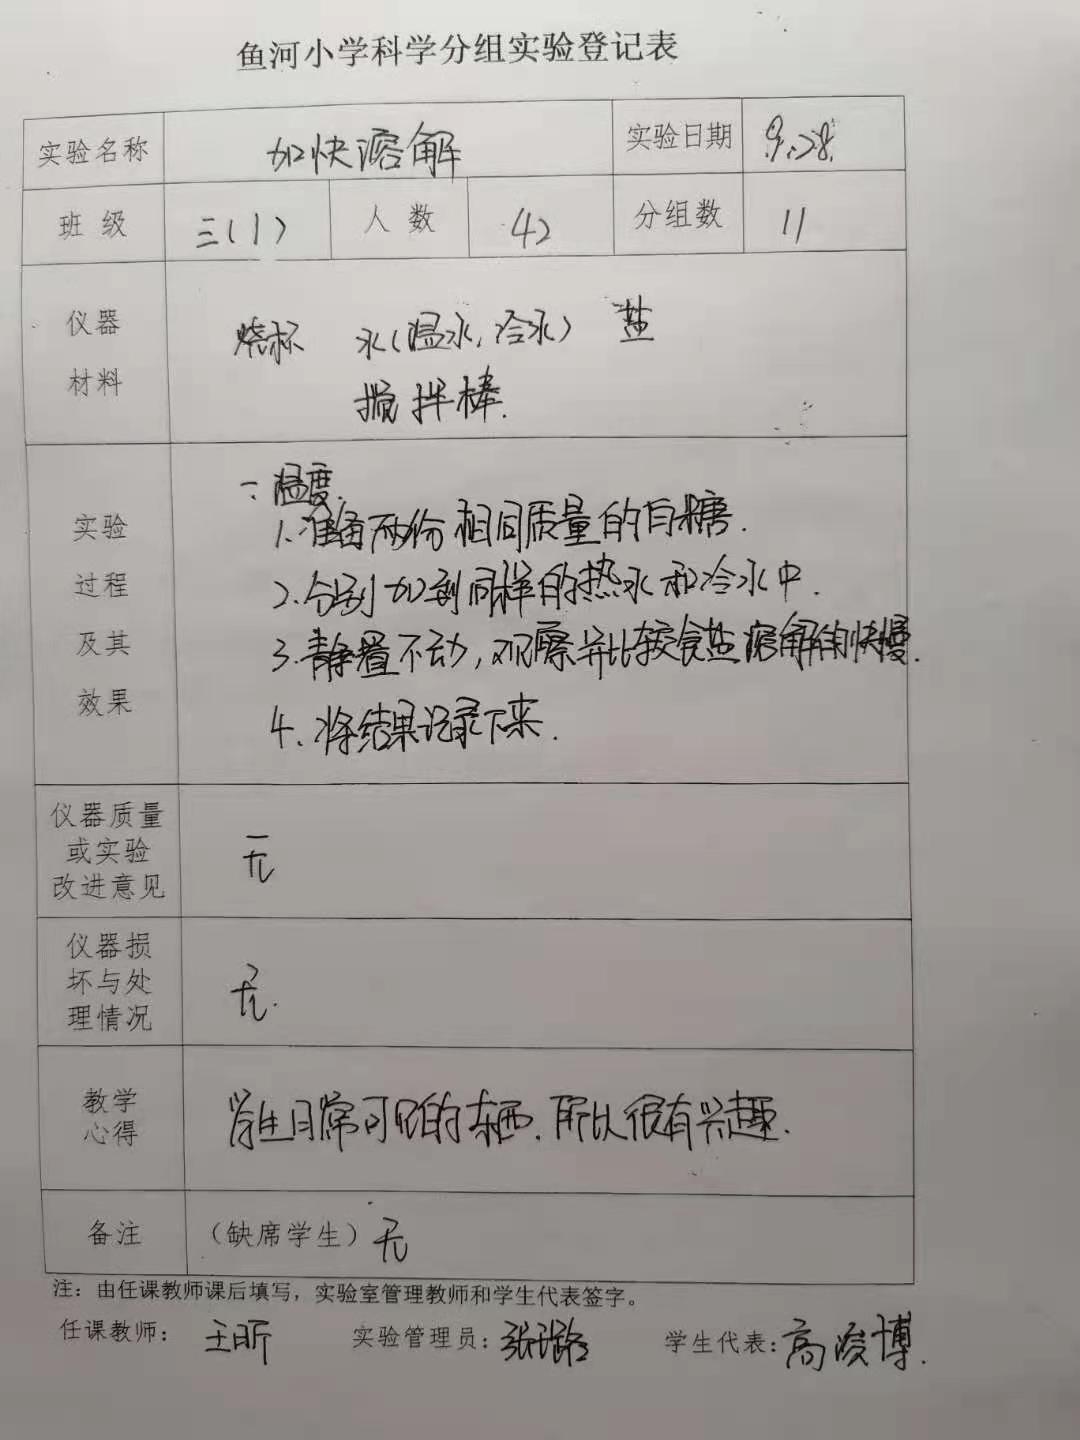 鱼河小学科学分组实验登记表
实验名称 加快溶解 实验日期 9.28.
班级 三(1) 人数 42 分组数 11
仪器材料
烧杯 水(温水,冷水) 盐
搅拌棒.
实验过程及其效果
一:温度.
1.准备两份相同质量的白糖.
2.分别加到同样的热水和冷水中.
3.静置不动,观察并比较食盐溶解的快慢.
4.将结果记录下来.
仪器质量或实验改进意见 无
仪器损坏与处理情况 无.
教学心得 学生日常可见的东西.所以很有兴趣.
备注 (缺席学生) 无
注:由任课教师课后填写,实验室管理教师和学生代表签字。
任课教师: 王昕 实验管理员: 张路 学生代表: 高浚博.